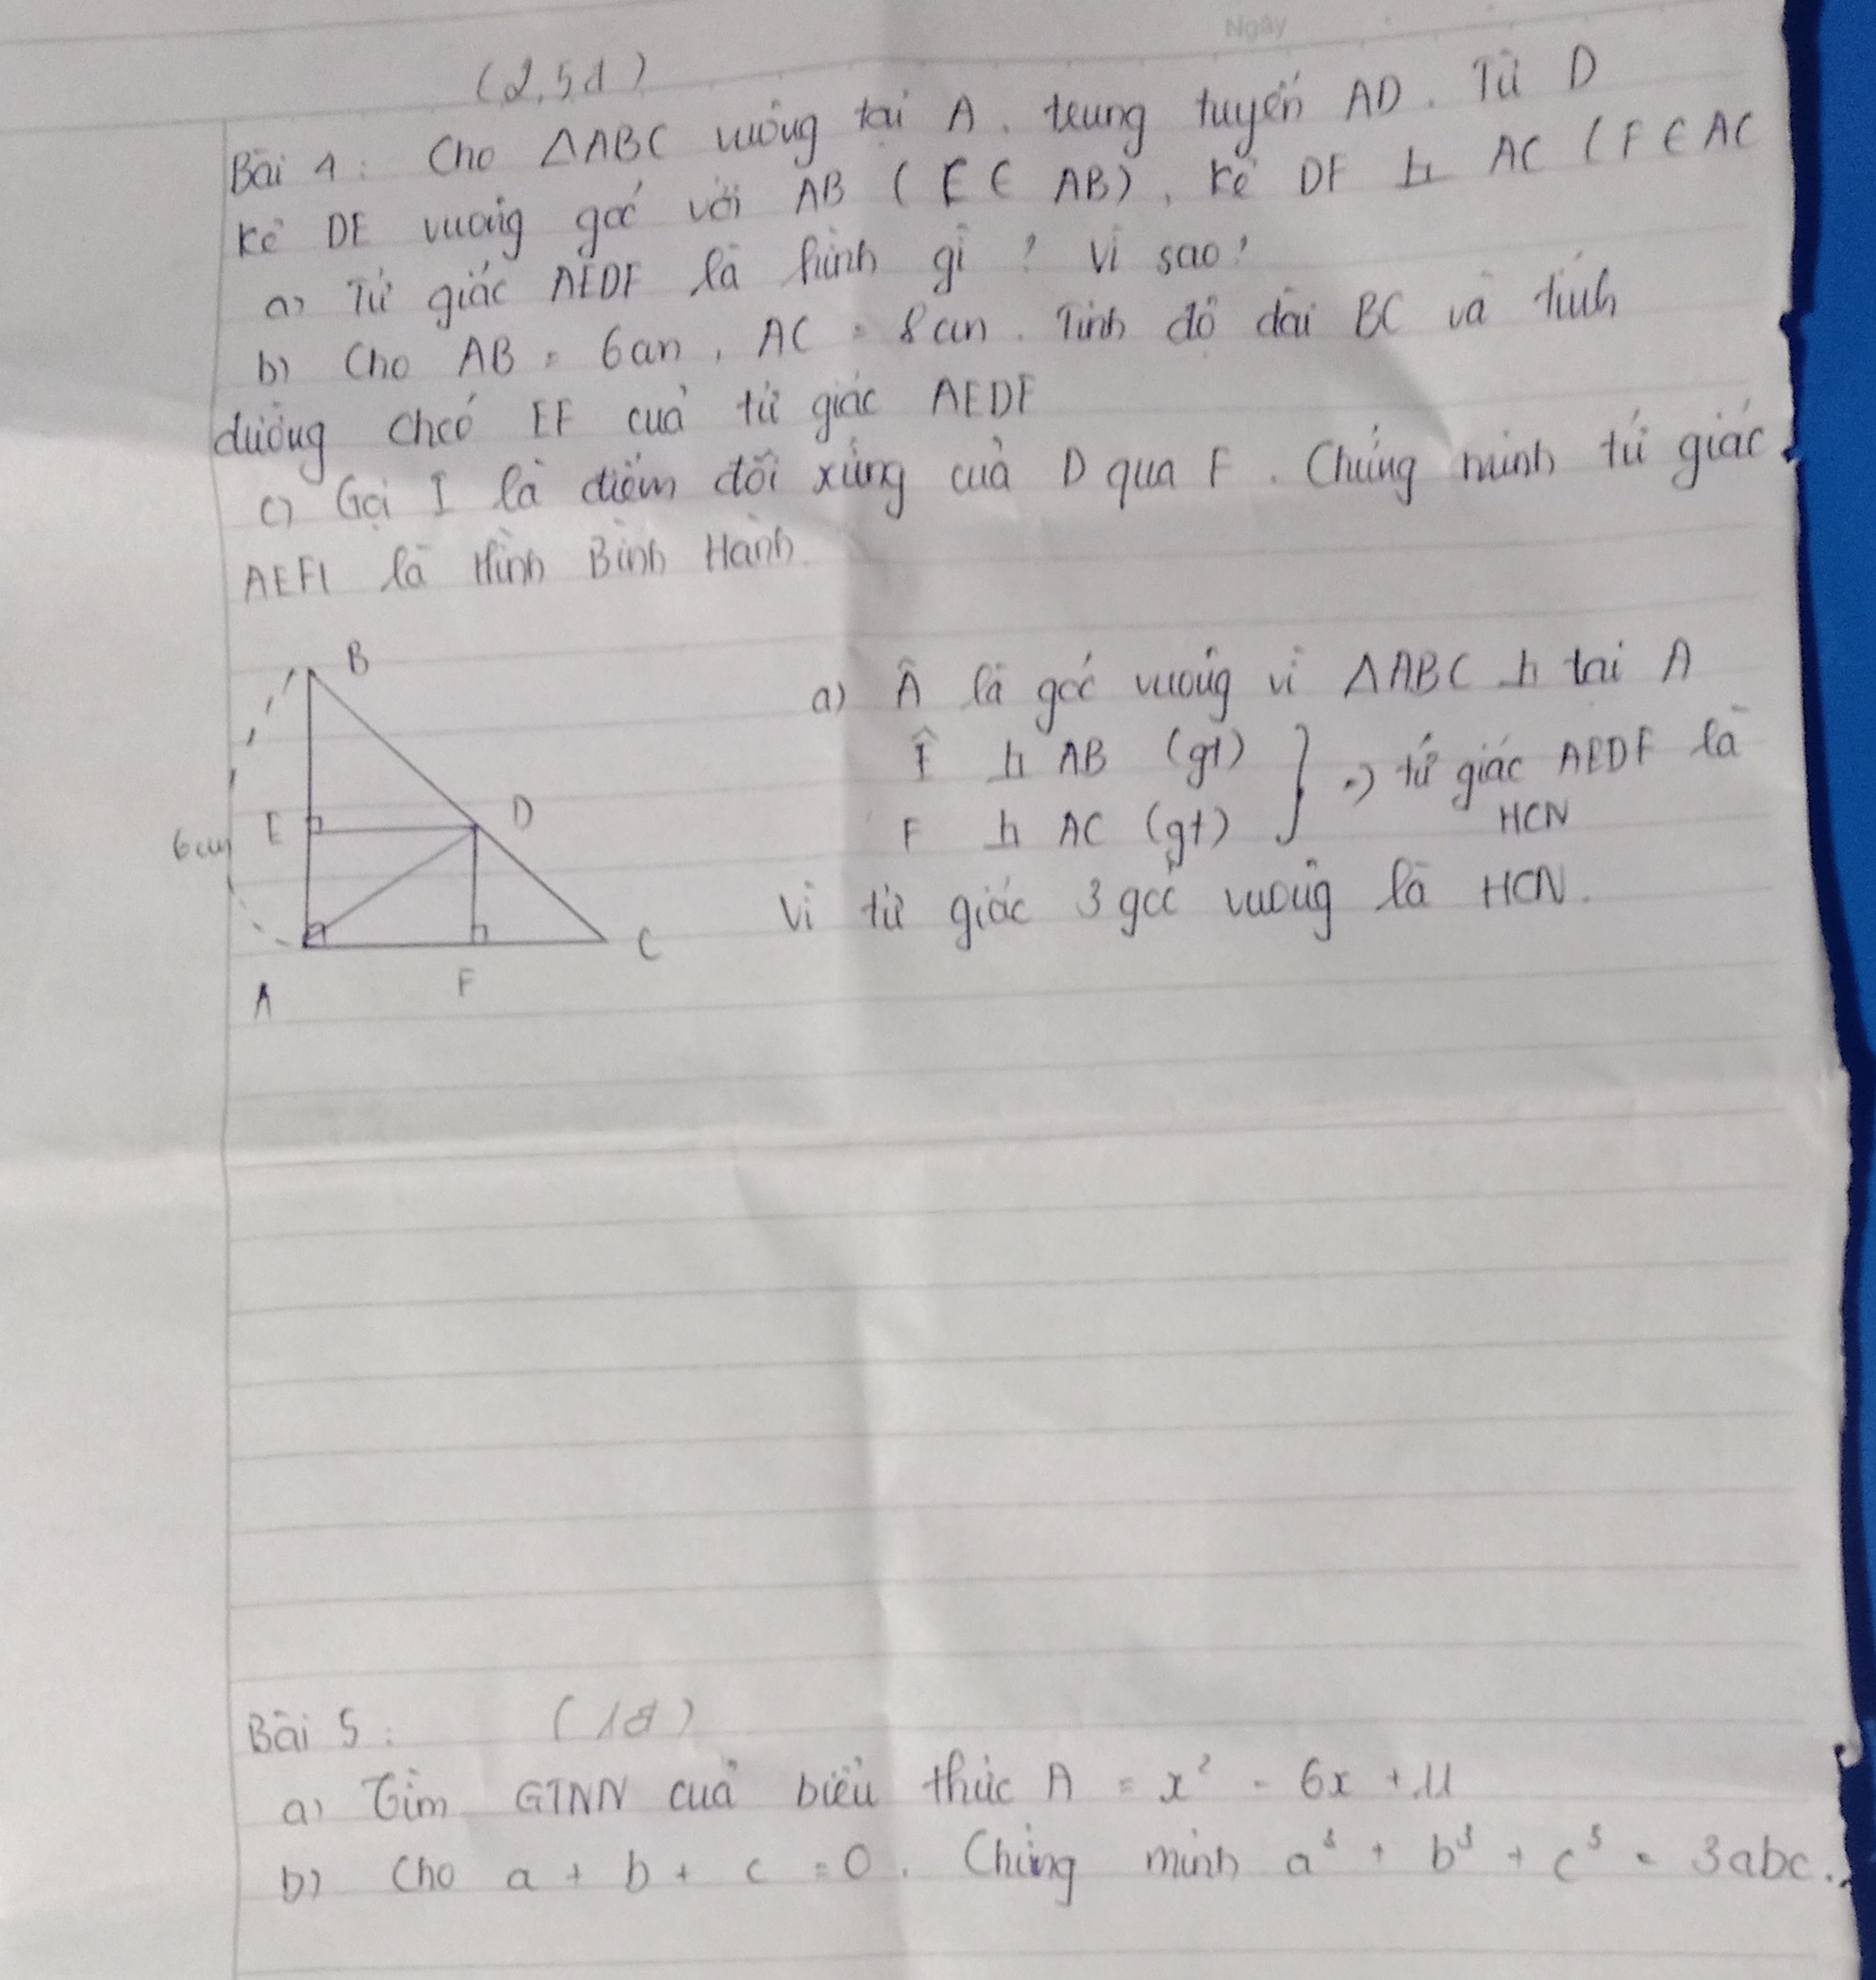 Ngày
(2,5đ)
Bài 4: Cho △ABC vuông tại A, trung tuyến AD. Từ D
kẻ DE vuông góc với AB (E ∈ AB), kẻ DF ⊥ AC (F ∈ AC
a) Tứ giác AEDF là hình gì? Vì sao?
b) Cho AB = 6cm, AC = 8cm. Tính độ dài BC và tính
đường chéo EF của tứ giác AEDF
c) Gọi I là điểm đối xứng của D qua F. Chứng minh tứ giác
AEFI là Hình Bình Hành.
B
E
D
6cm
A
F
C
a) Â là góc vuông vì △ABC ⊥ tại A
Ê ⊥ AB (gt)
F ⊥ AC (gt) } => tứ giác AEDF là
HCN
Vì tứ giác 3 góc vuông là HCN.
Bài 5: (1đ)
a) Tìm GTNN của biểu thức A = x² - 6x + 11
b) Cho a + b + c = 0. Chứng minh a³ + b³ + c³ = 3abc.